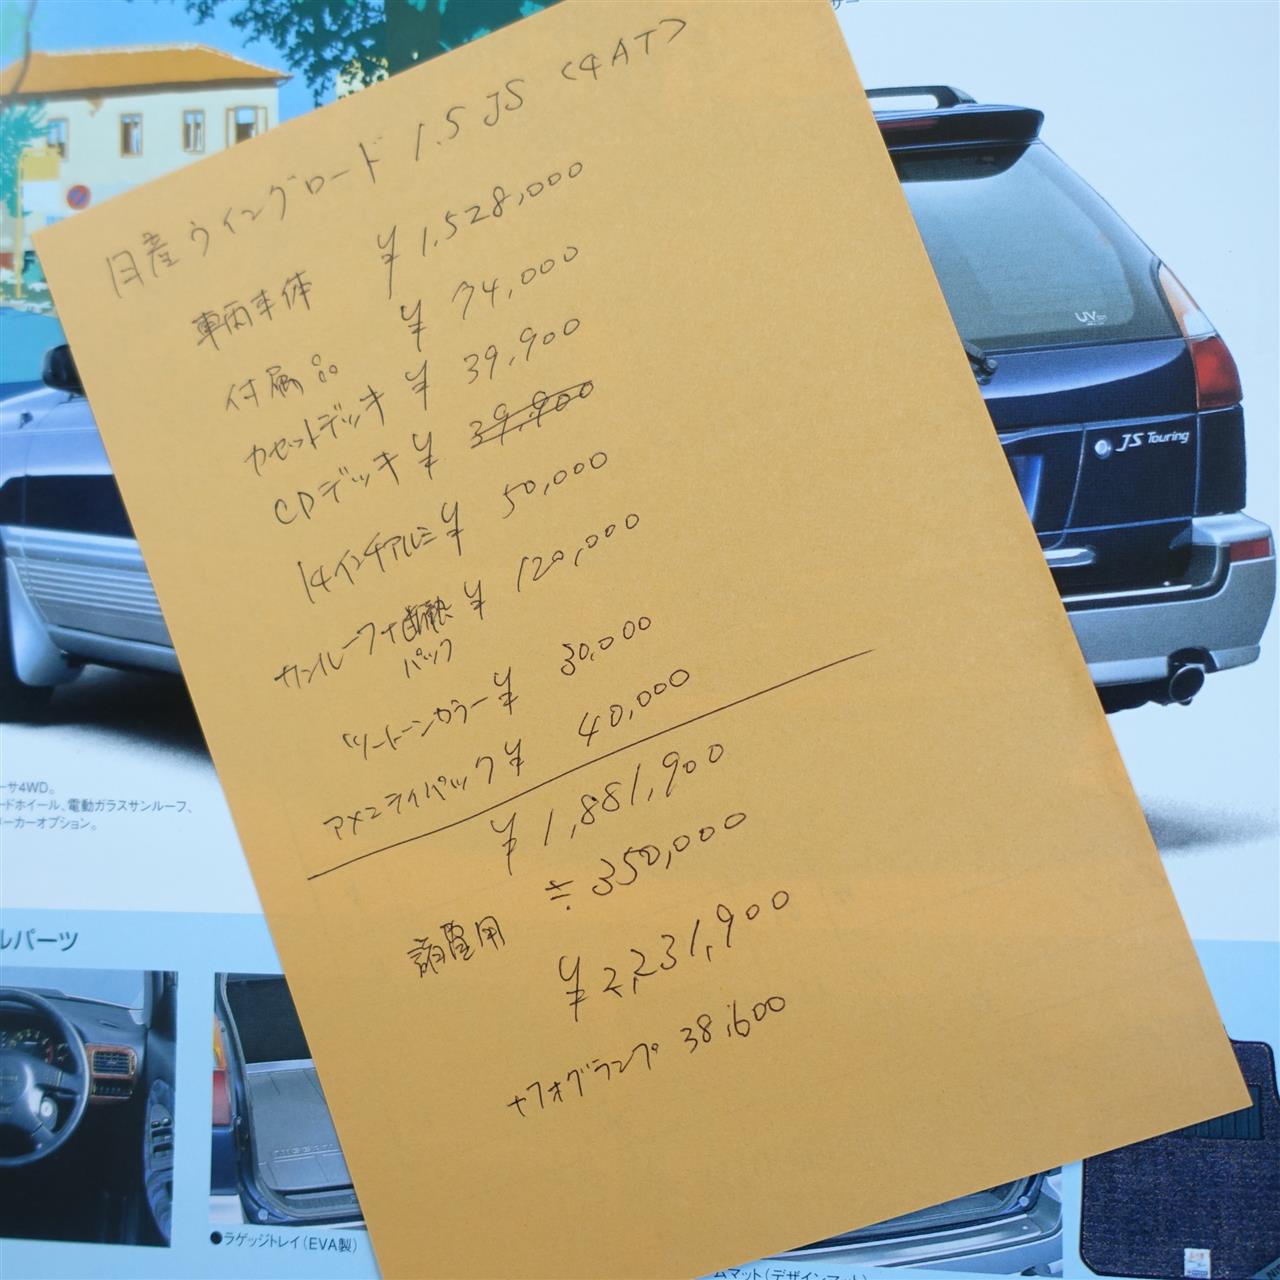 日産ウイングロード 1.5 JS <4AT>
車両本体 ¥1,528,000
付属品 ¥74,000
カセットデッキ ¥39,900
CDデッキ ¥39,900
14インチアルミ ¥50,000
サンルーフ+断熱 ¥120,000
パック
ツートーンカラー ¥30,000
アメニティパック ¥40,000
¥1,881,900
諸費用 ≒350,000
¥2,231,900
+フォグランプ 38,600
UV
JS Touring
ーサ4WD。
ードホイール、電動ガラスサンルーフ、
ーカーオプション。
ルパーツ
●ラゲッジトレイ(EVA製)
ムマット(デザインマット)